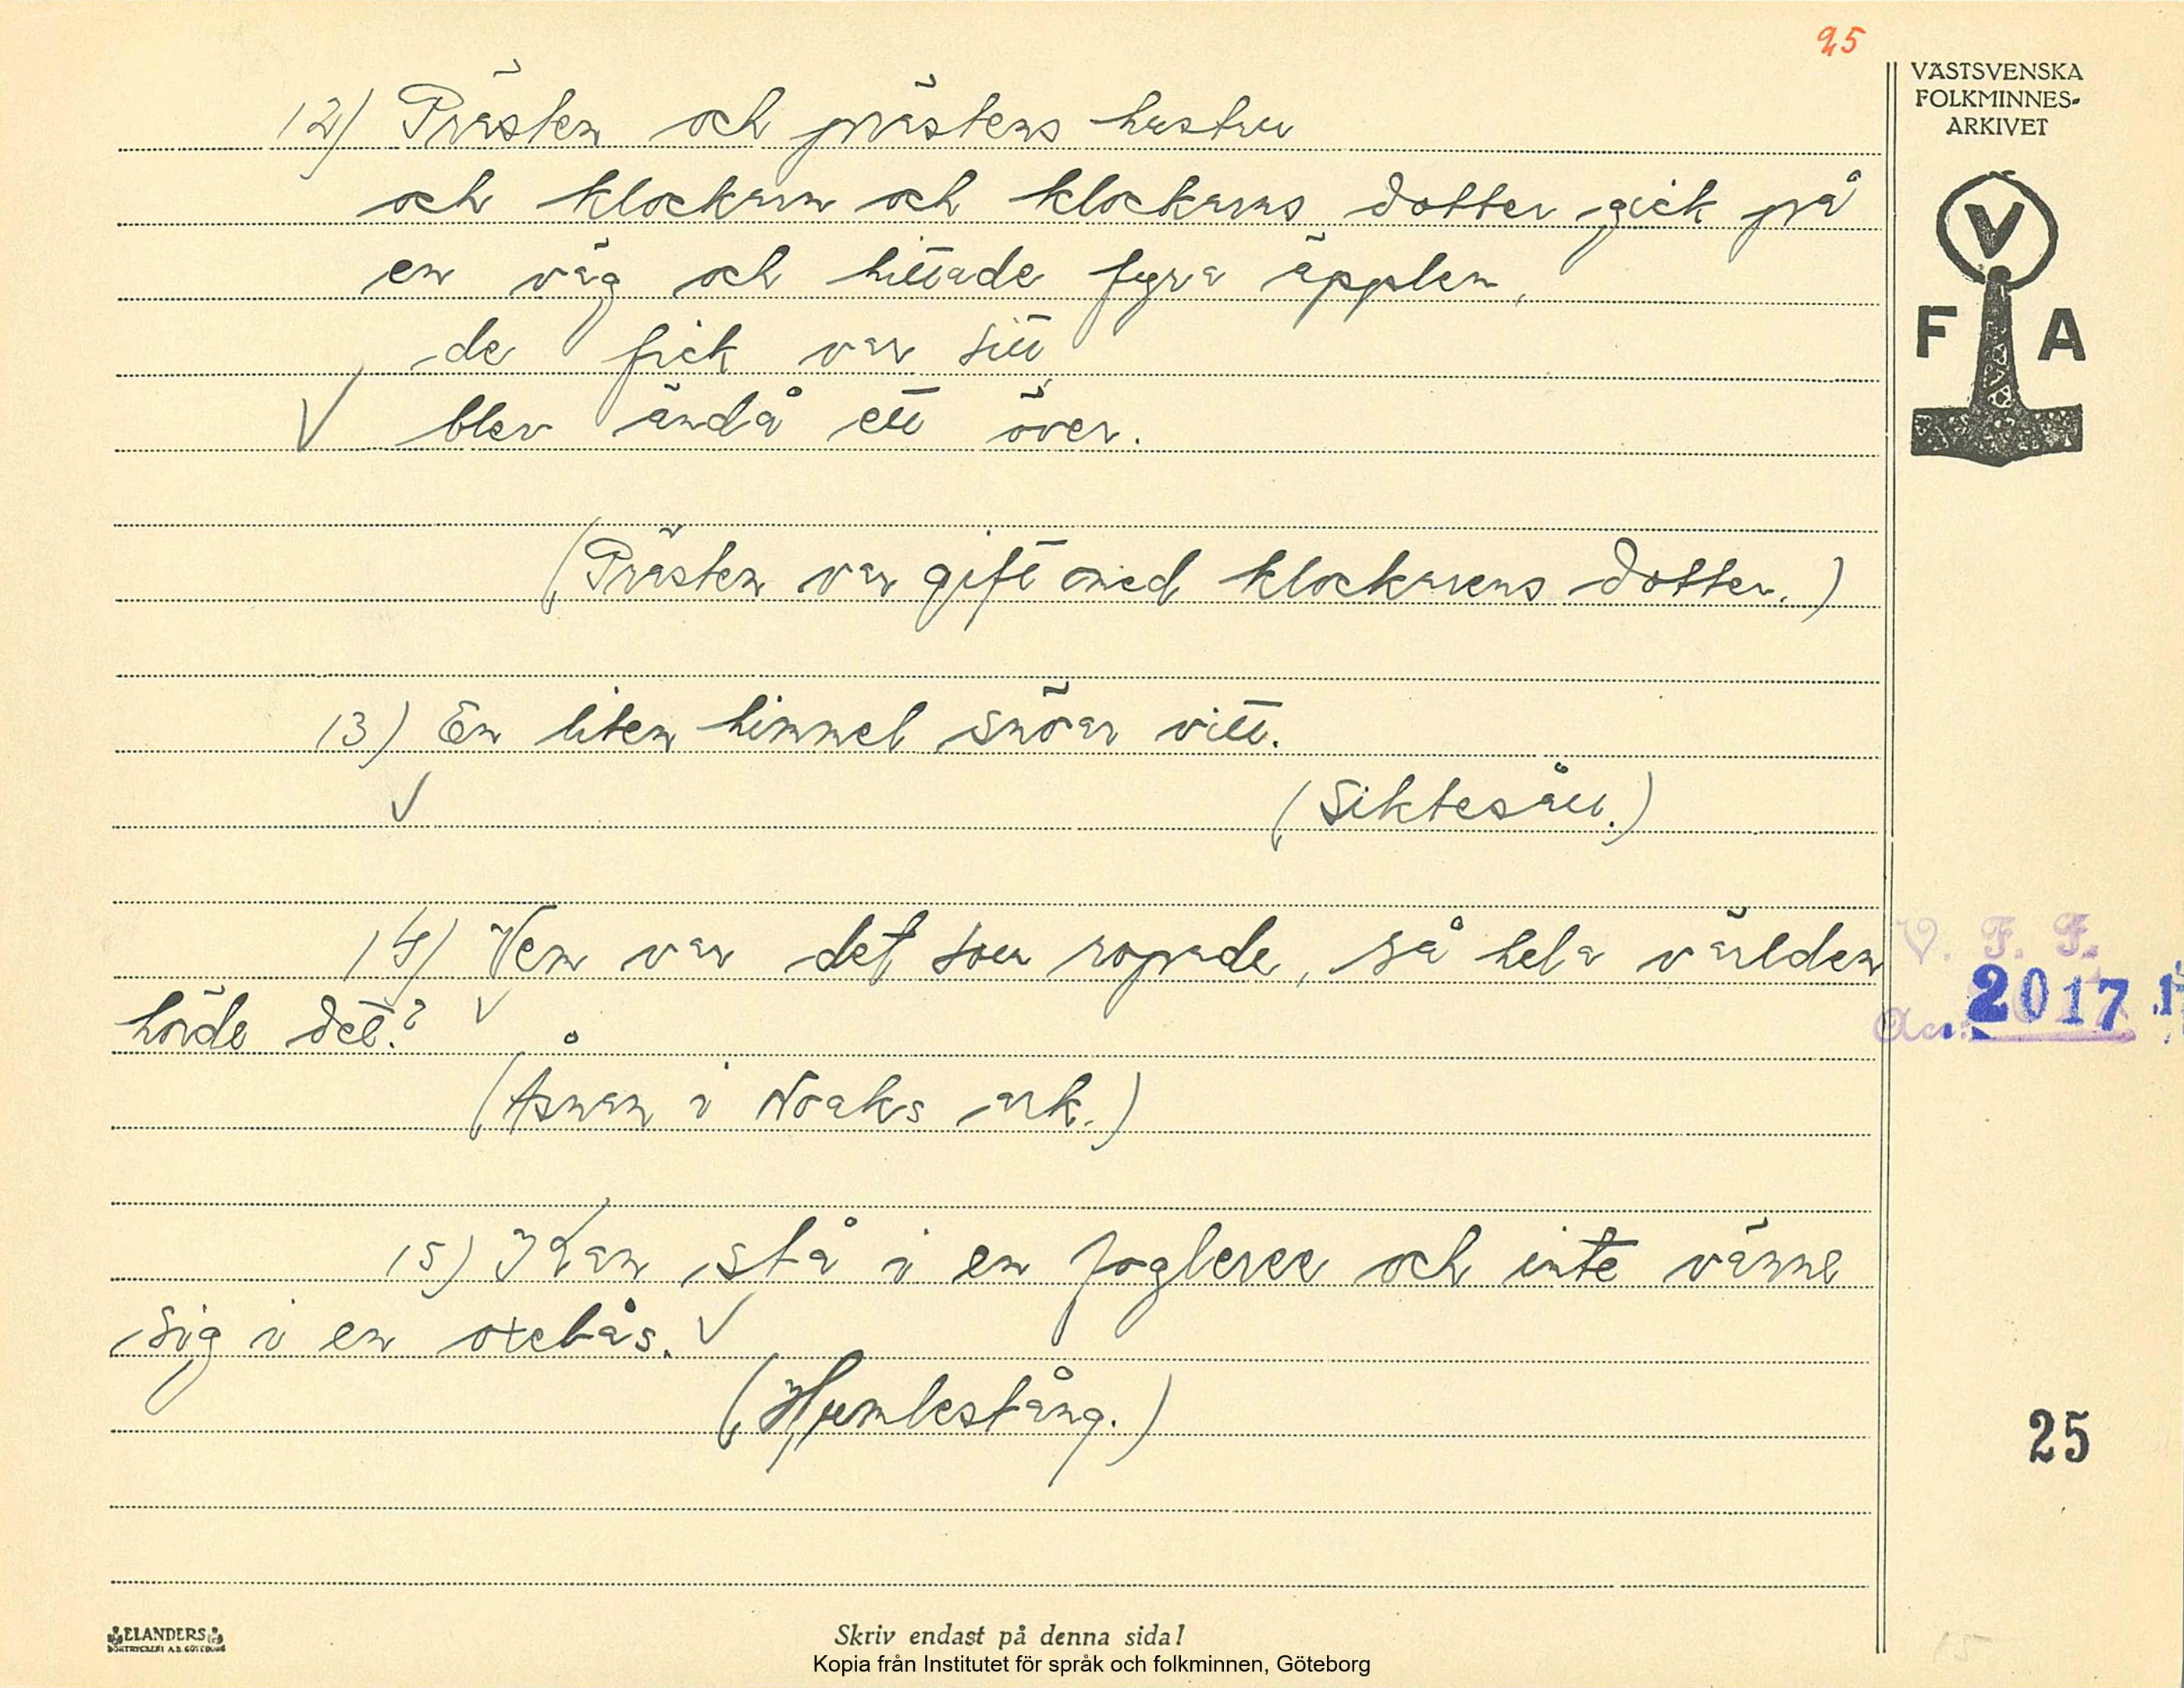 25
VÄSTSVENSKA
FOLKMINNES-
ARKIVET
V
F A
12) Prästen och prästens hustru
och klockarn och klockarns dotter gick på
en väg och hittade fyra äpplen,
de fick var sitt
blev ändå ett över.
(Prästen var gift med klockarens dotter.)
13) En liten himmel snöar vitt.
(Siktesåll.)
14) Vem var det som ropade, så hela världen
hörde det?
(Åsnan i Noaks ark.)
V. F. F.
Acc. 2017
15) Kan stå i en fogleree och inte vänne
sig i en oxebås.
(Humlestång.)
25
ELANDERS
BOKTRYCKERI A.B. GÖTEBORG
Skriv endast på denna sida!
Kopia från Institutet för språk och folkminnen, Göteborg